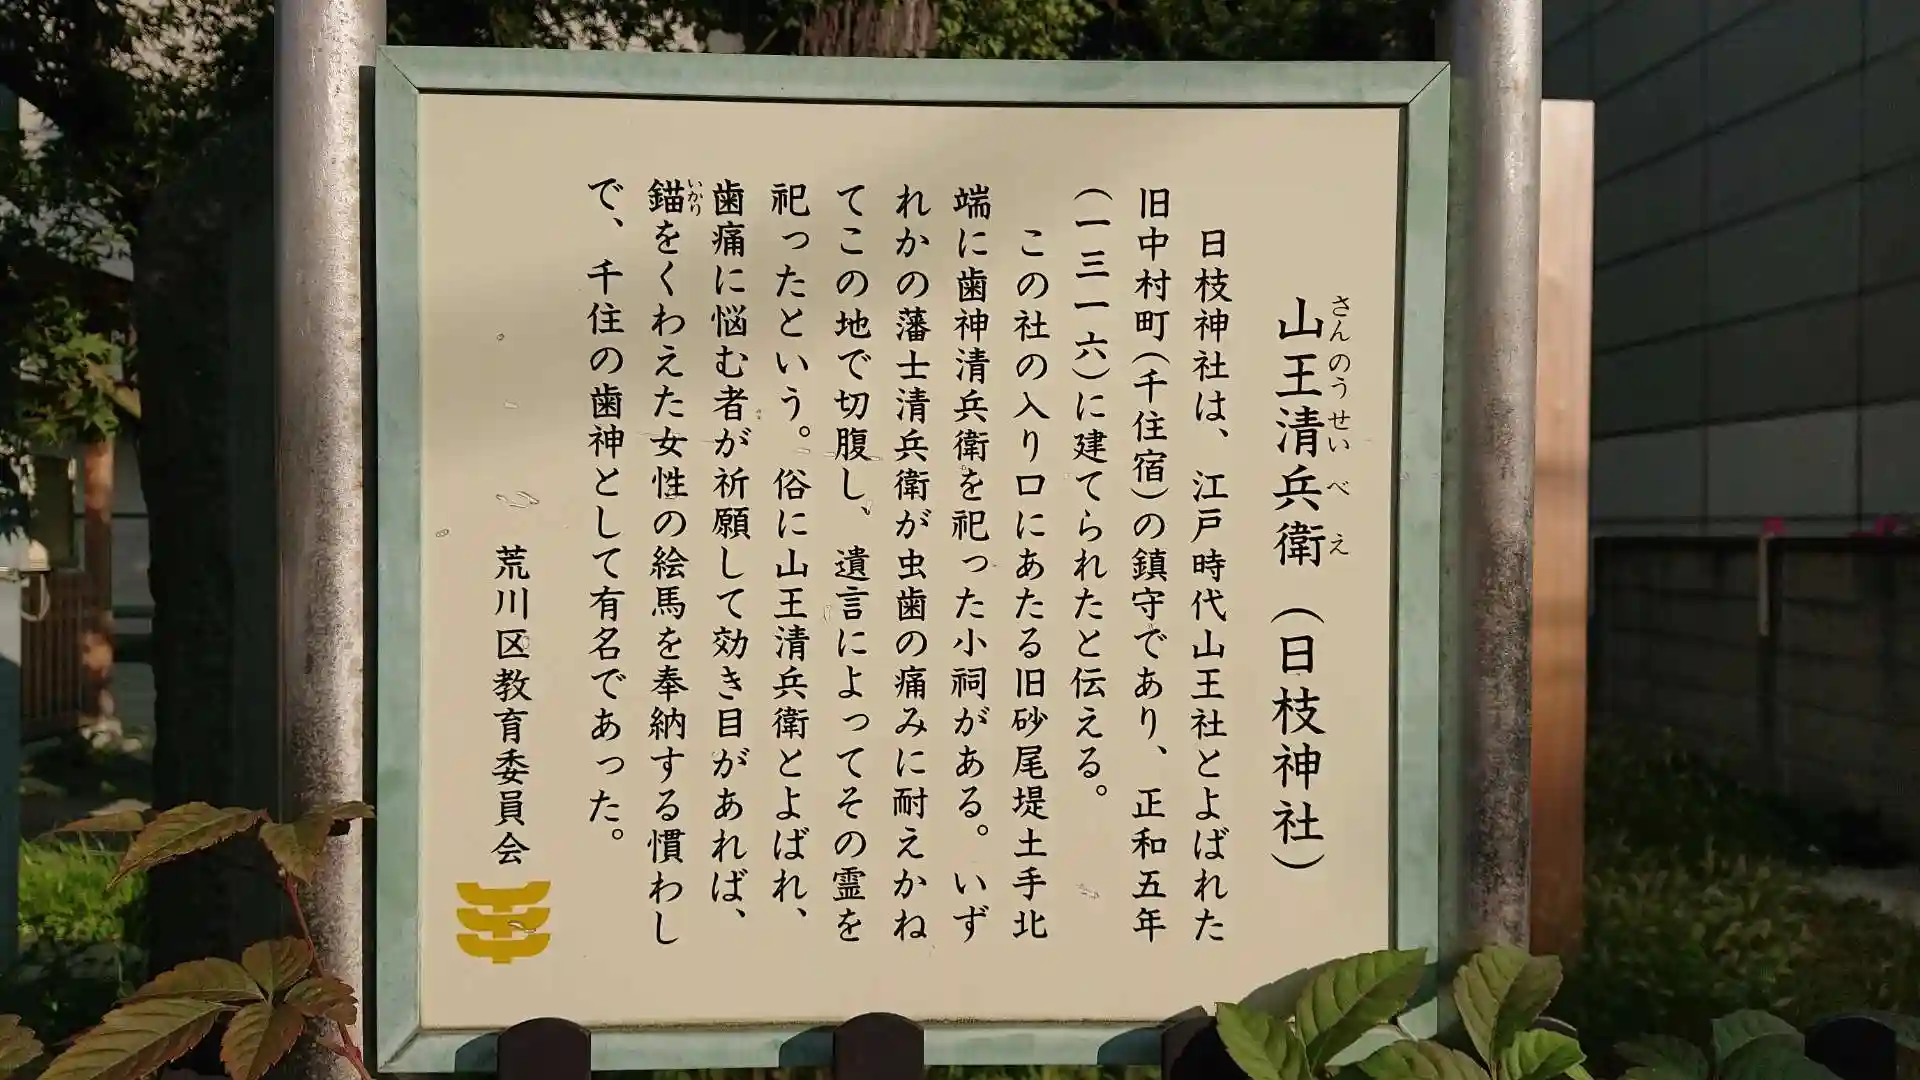 山王清兵衛（日枝神社）
さんのうせいべえ
日枝神社は、江戸時代山王社とよばれた
旧中村町（千住宿）の鎮守であり、正和五年
（一三一六）に建てられたと伝える。
この社の入り口にあたる旧砂尾堤土手北
端に歯神清兵衛を祀った小祠がある。いず
れかの藩士清兵衛が虫歯の痛みに耐えかね
てこの地で切腹し、遺言によってその霊を
祀ったという。俗に山王清兵衛とよばれ、
歯痛に悩む者が祈願して効き目があれば、
いかり
錨をくわえた女性の絵馬を奉納する慣わし
で、千住の歯神として有名であった。
荒川区教育委員会